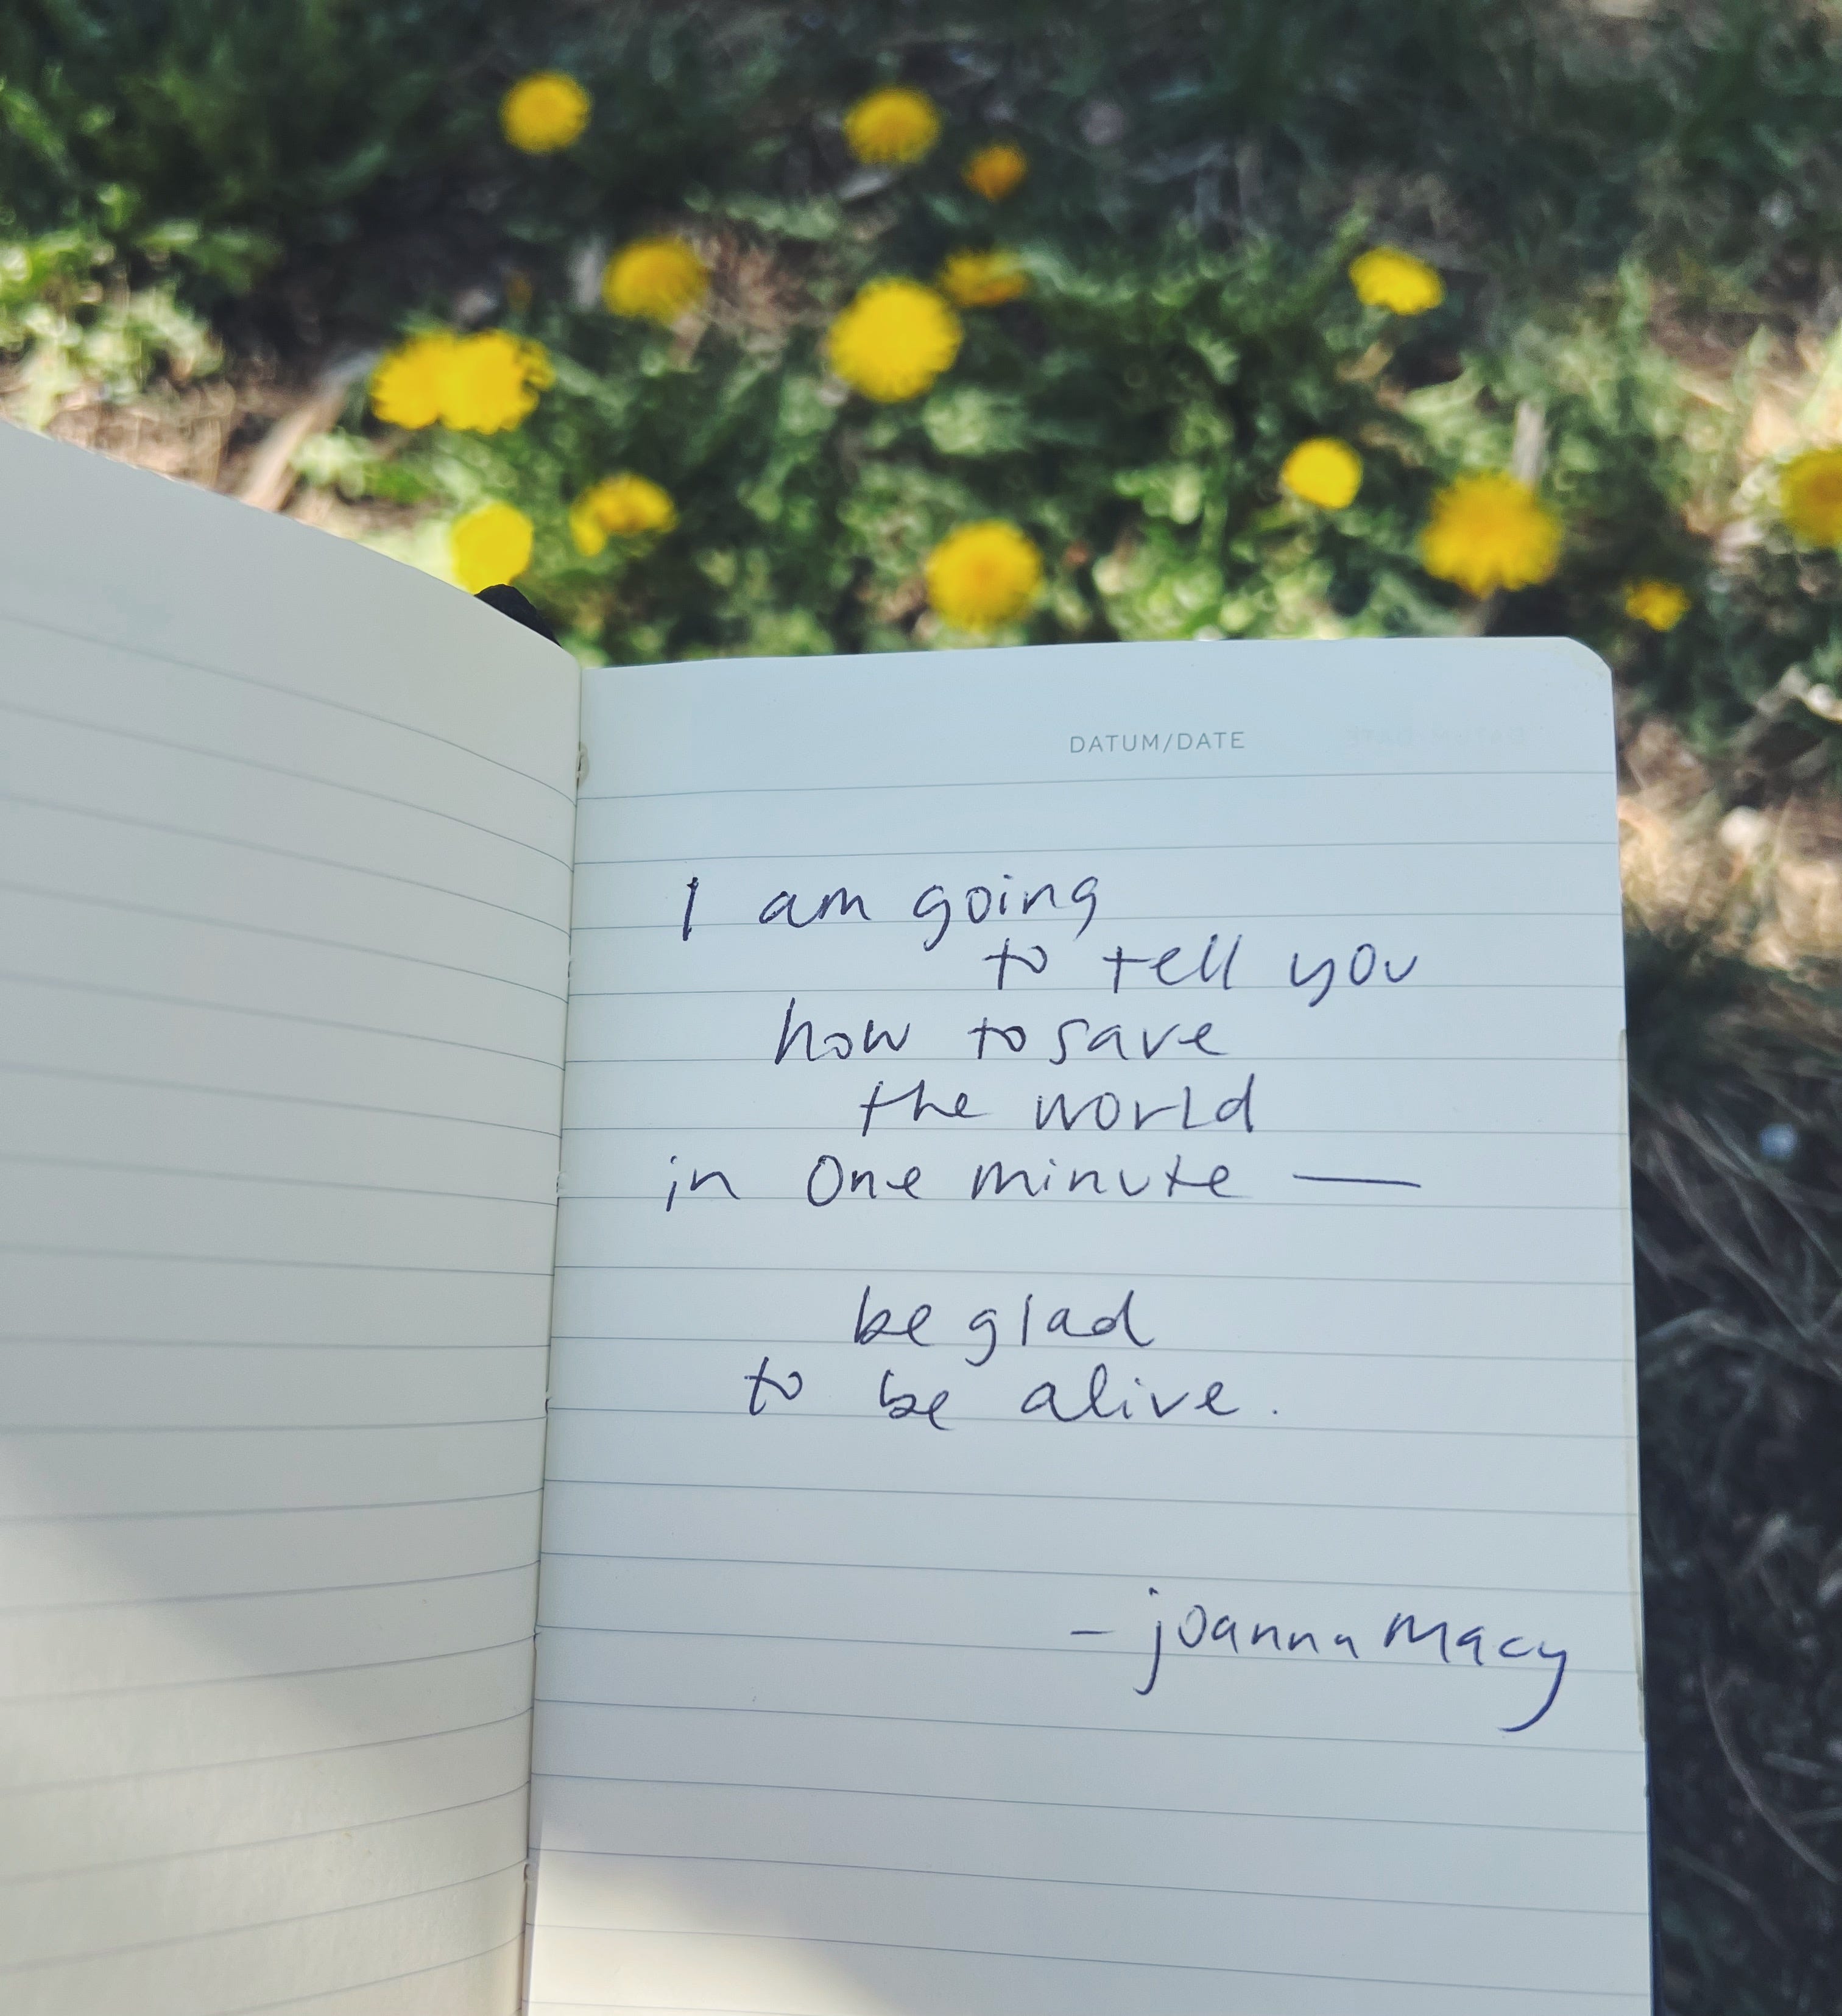 DATUM/DATE
I am going
to tell you
how to save
the world
in one minute —
be glad
to be alive.
- joanna Macy